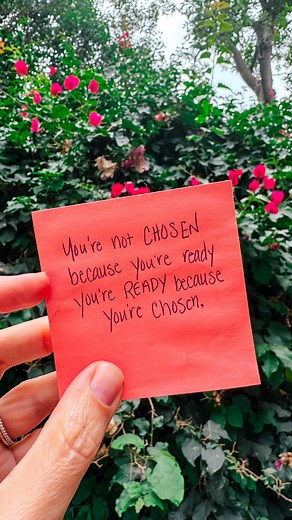 You're not CHOSEN
because you're ready
You're READY because
you're chosen.